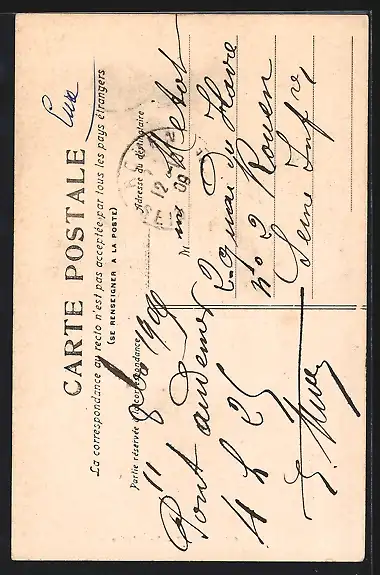 Eure
CARTE POSTALE
La correspondance au recto n'est pas acceptée par tous les pays étrangers
(SE RENSEIGNER A LA POSTE)
Partie réservée à la correspondance
Adresse du destinataire
12
09
Pont audemer
4 h 25
M
Quai du Havre
n° 2 Rouen
Seine Infre